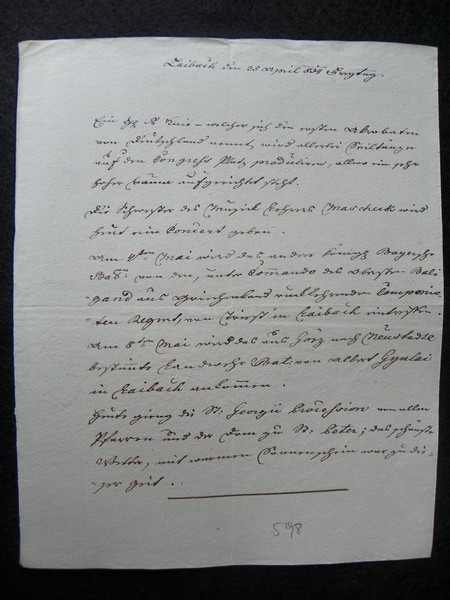 Laibach den 25 April 834 Freytag.
Ein H. welcher sich den ersten Akrobaten
von Deutschland nennt, wird allerlei Seiltänze
auf den Congress Platz produziren, allwo ein sehr
hoher Bäume aufgerichtet steht.
Die Schwester des Musick Lehrers Mascheck wird
heut ein Concert geben.
Am 4ten Mai wird das andere Königl Bayersche
Bat: von den, unter Commando des Obersten Bali
gand aus Griechenland rückkehrenden Componir
ten Regmt, von Triest in Laibach eintreffen.
Am 5ten Mai wird das aus Görz nach Neustadtl
bestimte Landwehr Bat: von Albert Gyulai
in Laibach ankommen.
Heute gieng die St: Georgii Procession von allen
Pfarren und der Dom zu St: Peter; das schönste
Wetter, mit warmen Sonnenschein war zu die-
ser Zeit.
598